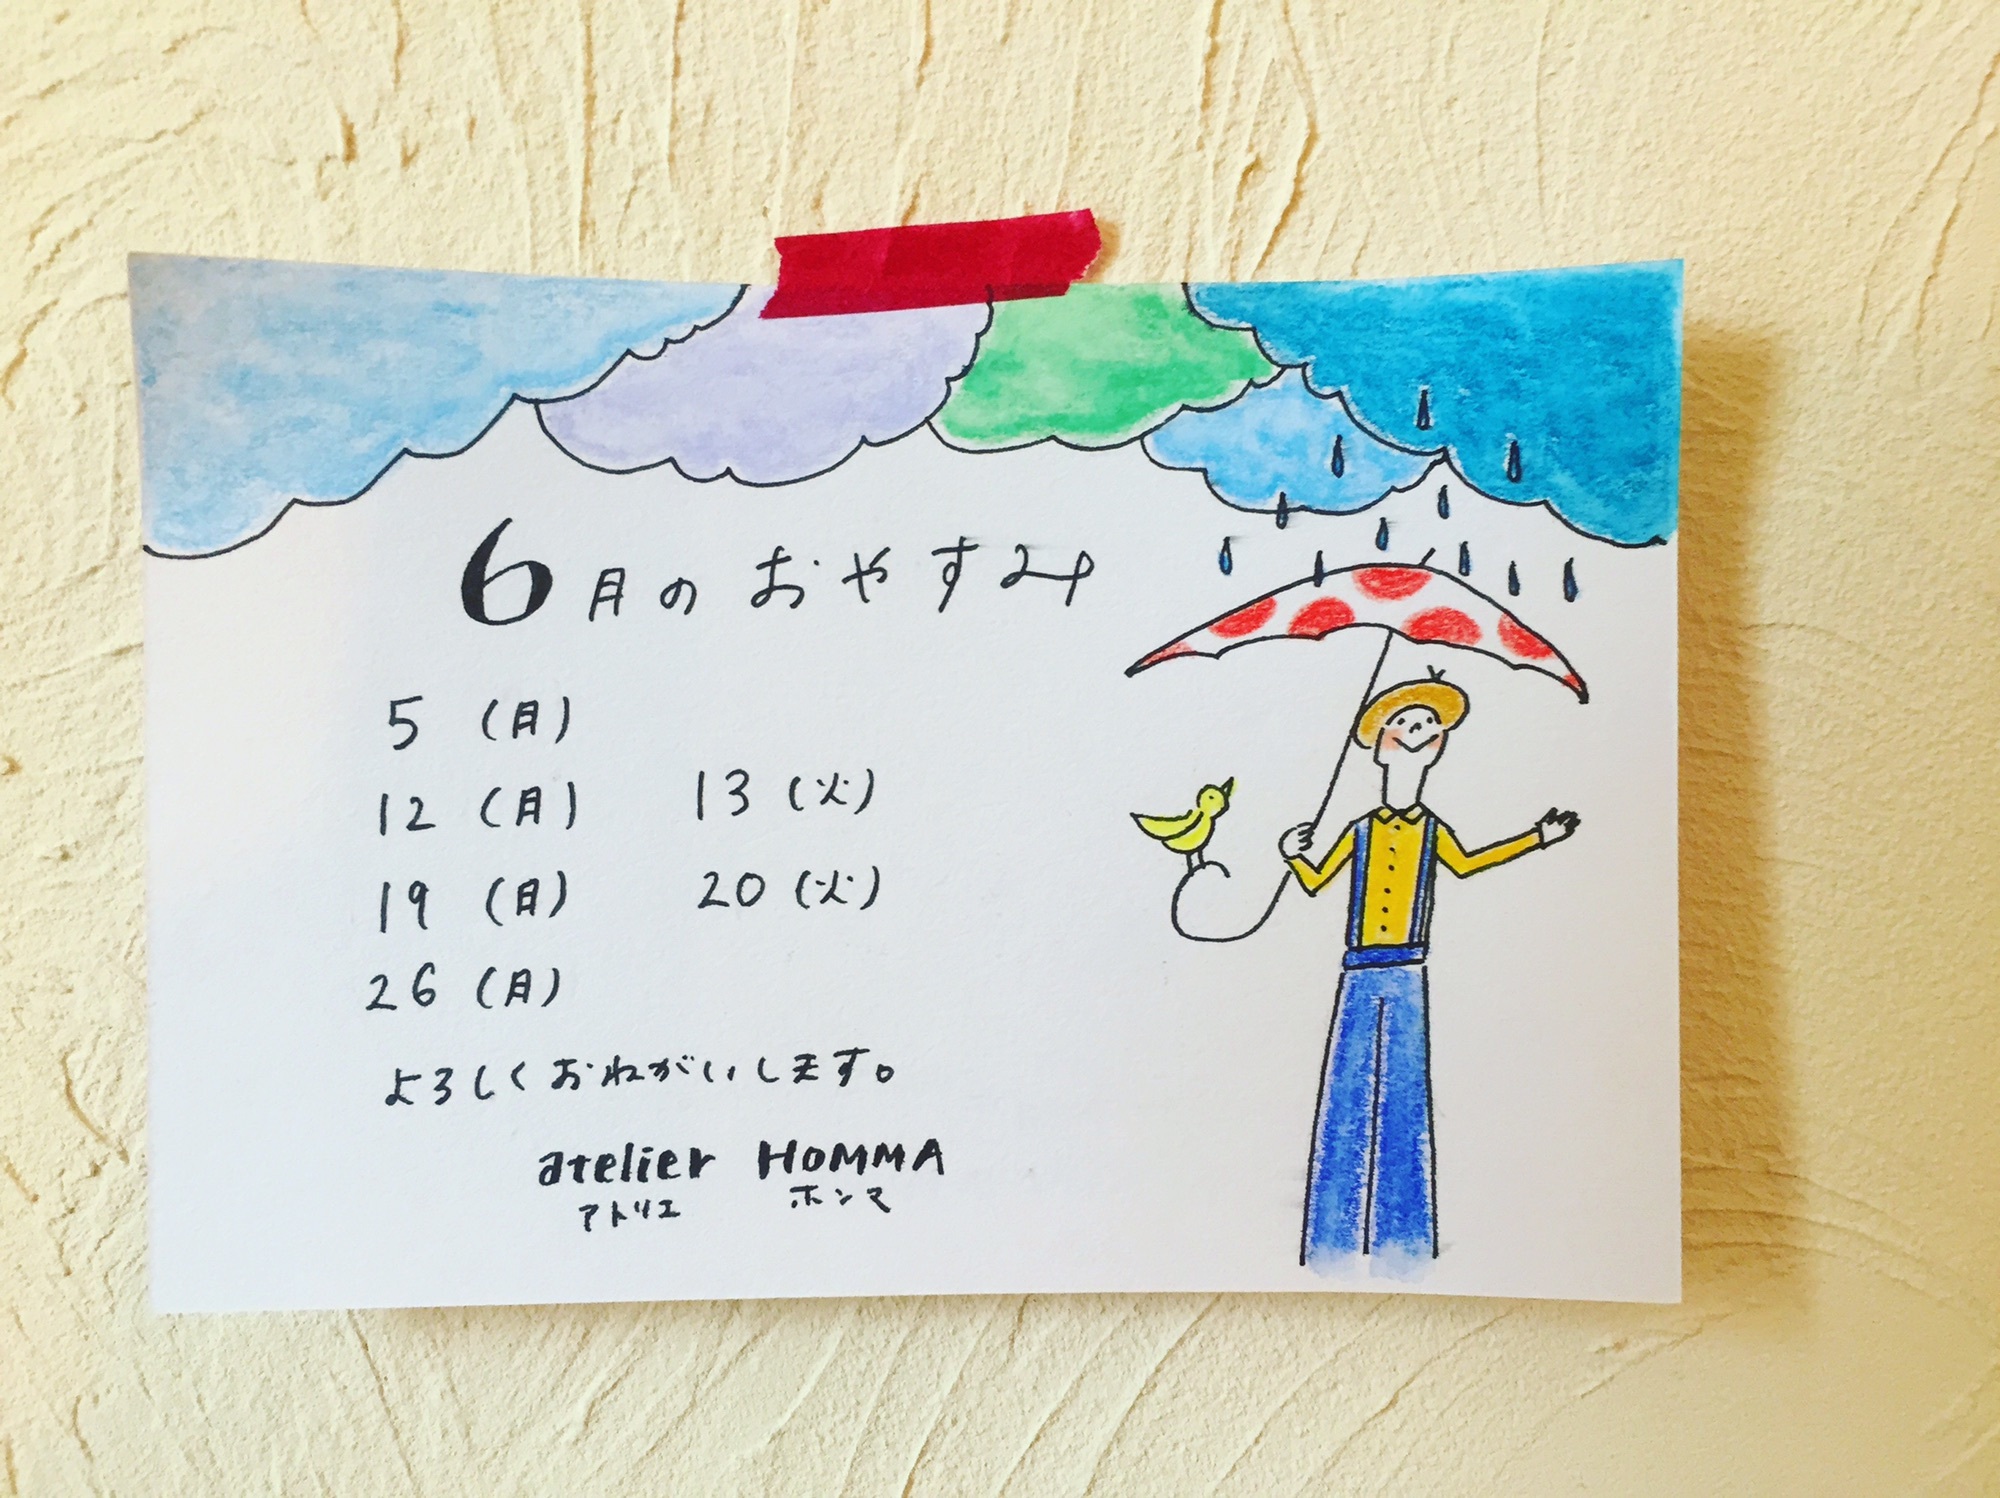 6月のおやすみ
5 (月)
12 (月) 13 (火)
19 (月) 20 (火)
26 (月)
よろしくおねがいします。
atelier HOMMA
アトリエ ホンマ